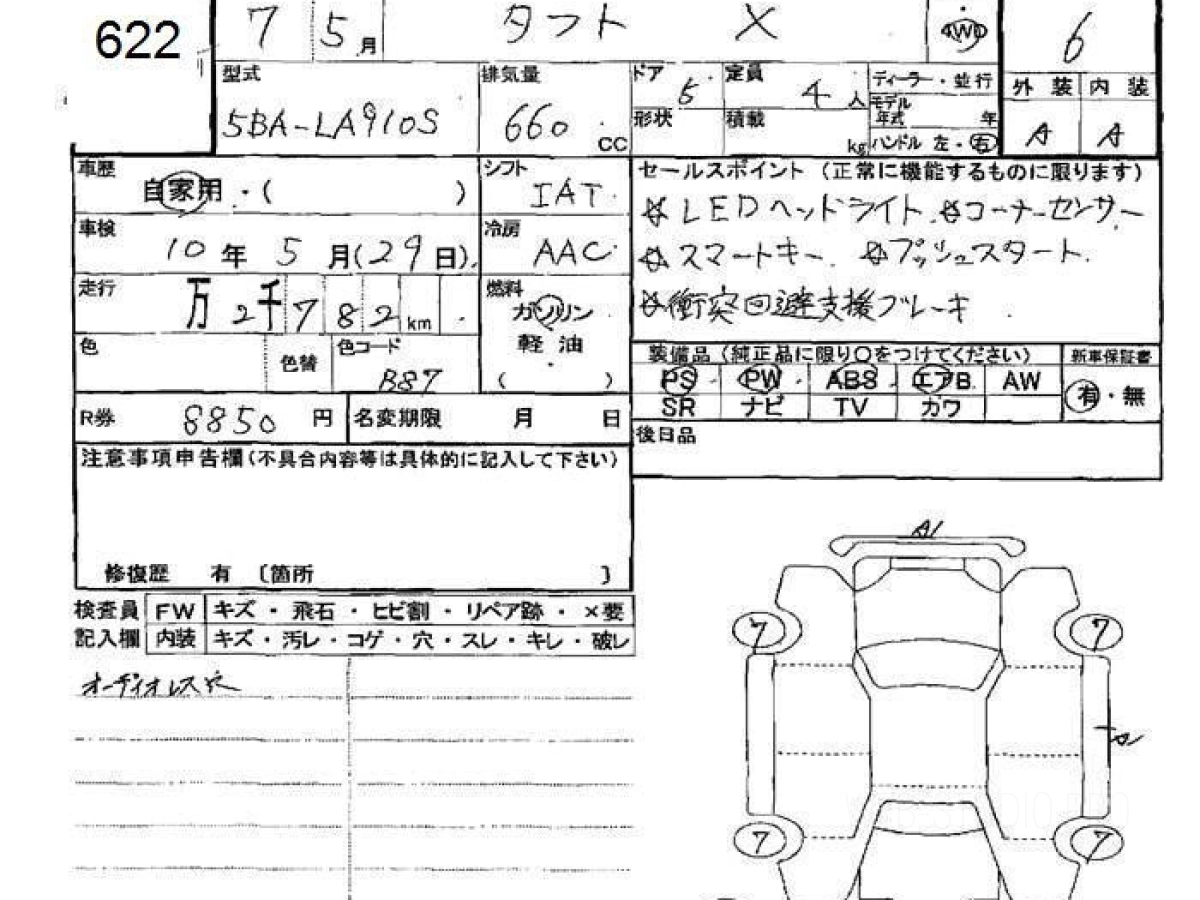 622
7 5月 タフト X 4WD 6
型式 5BA-LA910S
排気量 660 CC
ドア 5 定員 4人
形状 積載 kg
ディーラー・並行
モデル年式 年
ハンドル 左・右
外装 内装
A A
車歴 自家用・( )
シフト IAT
車検 10年5月(29日)
冷房 AAC
走行 万2千782km
燃料 ガソリン
軽油
( )
色 色替 色コード B87
R券 8850円 名変期限 月 日
セールスポイント(正常に機能するものに限ります)
☆LEDヘッドライト ☆コーナーセンサー
☆スマートキー ☆プッシュスタート
☆衝突回避支援ブレーキ
装備品(純正品に限り○をつけてください) 新車保証書
PS PW ABS エアB AW
SR ナビ TV カワ
有・無
後日品
注意事項申告欄(不具合内容等は具体的に記入して下さい)
修復歴 有 〔箇所 〕
検査員 FW キズ・飛石・ヒビ割・リペア跡・×要
記入欄 内装 キズ・汚レ・コゲ・穴・スレ・キレ・破レ
オーディオレス穴
A1
7 7
A
7 7